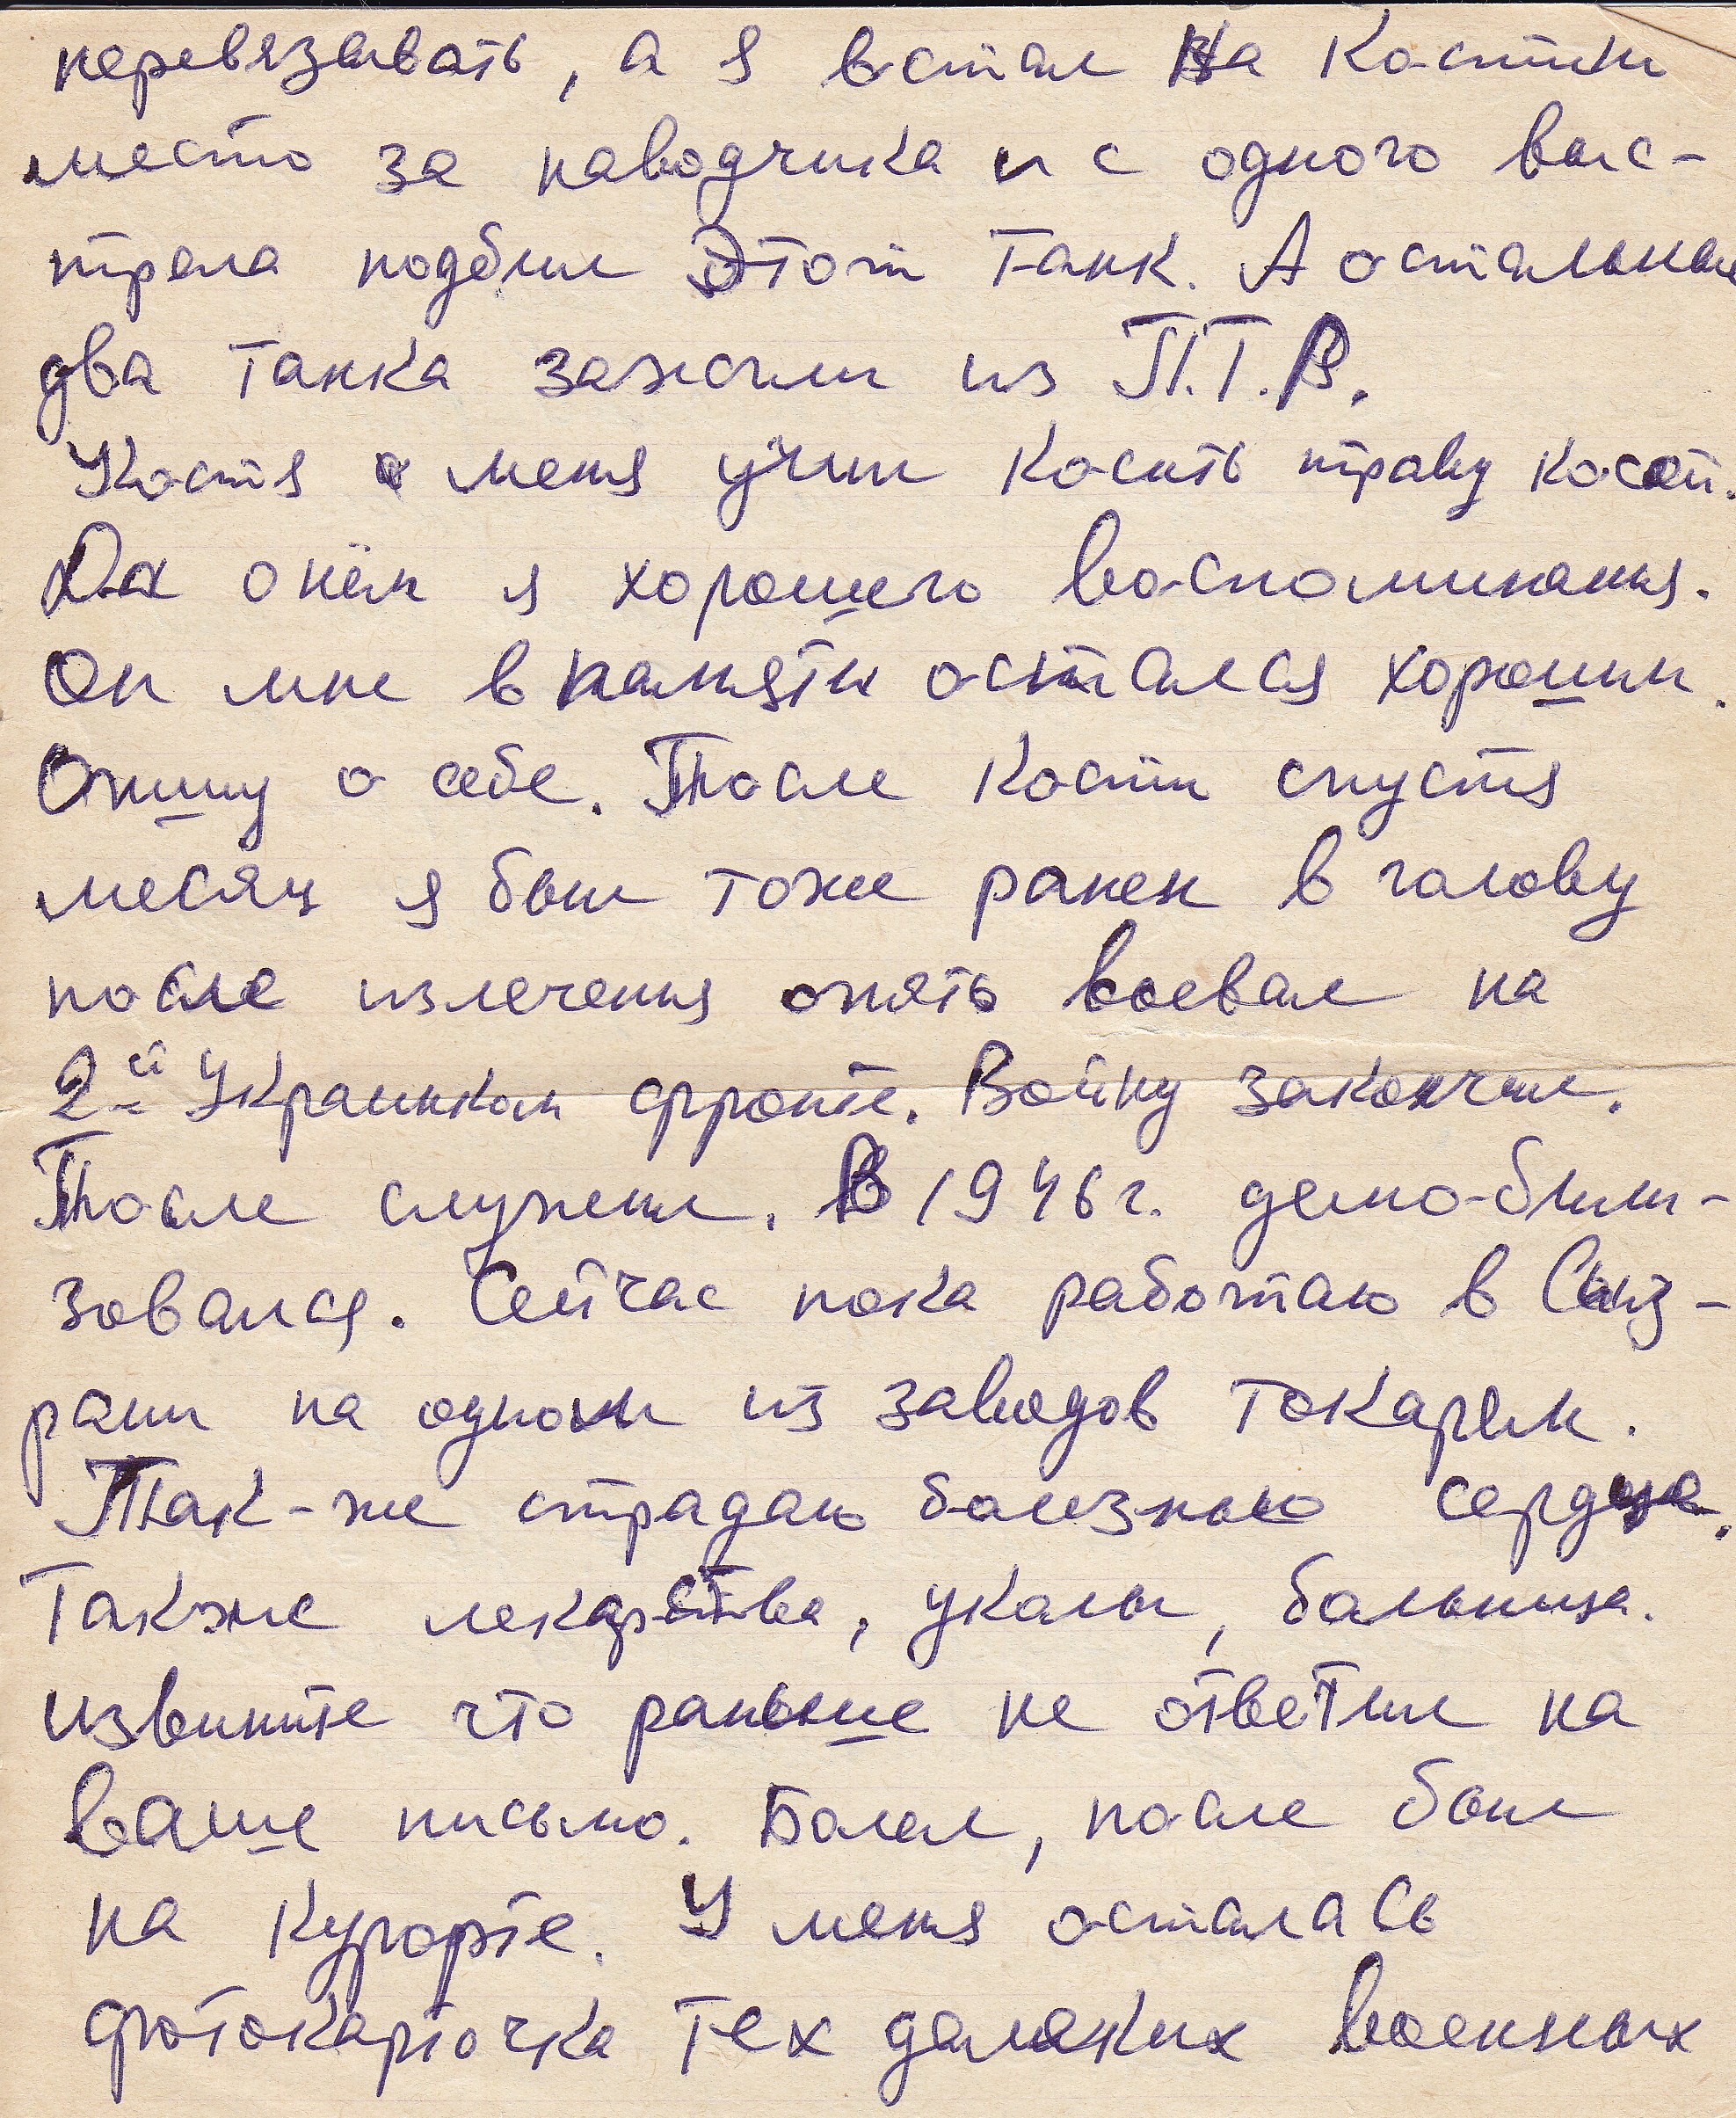 перевязывать, а я встал на Костин
место за наводчика и с одного выс-
трела подбил Этот танк. А остальные
два танка зажгли из П.Т.Р.
Костя меня учил косить траву косой.
Да о нём я хорошего воспоминания.
Он мне в памяти остался хорошим.
Опишу о себе. После Кости спустя
месяц я был тоже ранен в голову
после излечения опять воевал на
2-й Украинком фронте. Войну закончил.
После служил. В 1946 г. демо-били-
зовался. Сейчас пока работаю в Сыз-
рани на одном из заводов токарем.
Так-же страдаю болезнью сердца.
Также лекарства, уколы, больница.
извините что раньше не ответил на
ваше письмо. Болел, после был
на курорте. У меня осталась
фотокарточка тех далёких военных